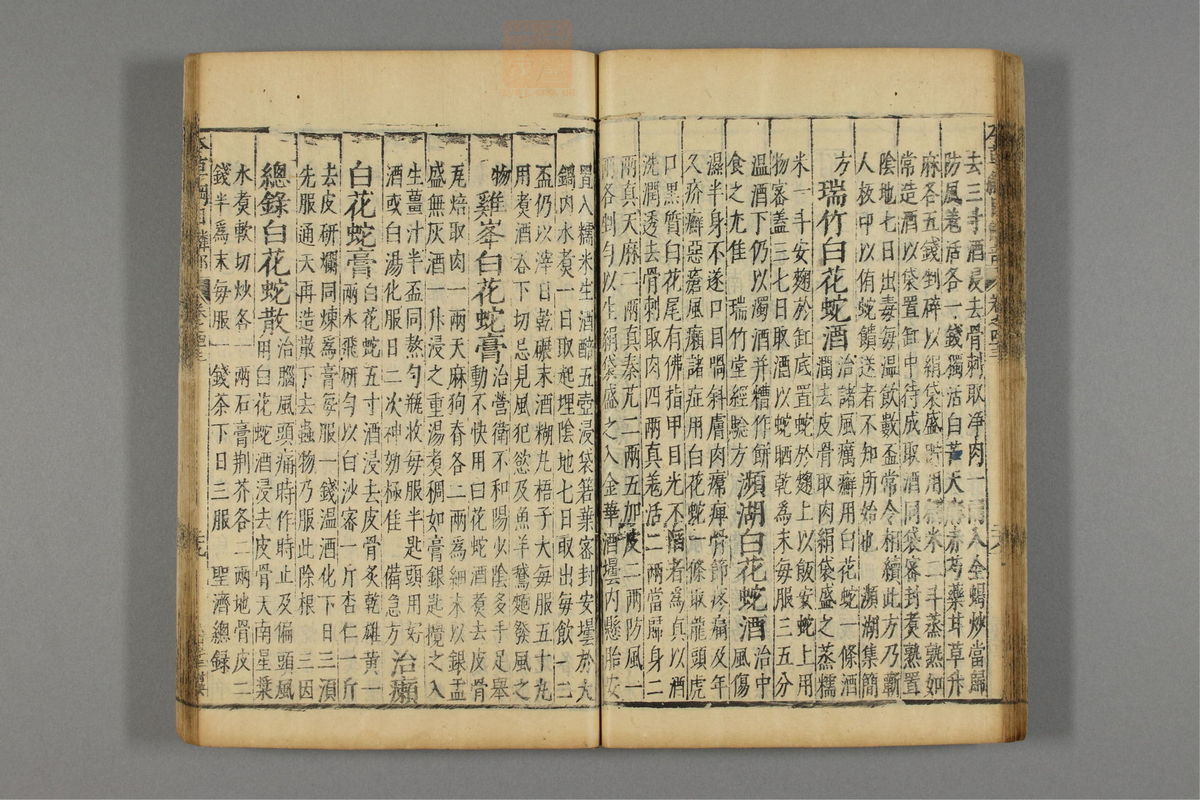 去三寸酒浸去骨刺取净肉一兩入全蝎炒當歸
防風羗活各一錢獨活白芷天麻赤芍藥甘草升
麻各五錢剉碎以絹袋盛貯用糯米二斗蒸熟如
常造酒以袋置缸中待成取酒同袋密封煮熟置
陰地七日出毒每温飲數盃常令相續此方乃蘄
人板印以侑蛇饋送者不知所始也 瀕湖集簡
方 瑞竹白花蛇酒治諸風癘癬用白花蛇一條酒
潤去皮骨取肉絹袋盛之蒸糯
米一斗安麴於缸底置蛇於麴上以飯安蛇上用
物密蓋三七日取酒以蛇晒乾為末每服三五分
温酒下仍以濁酒并糟作餅
食之尤佳 瑞竹堂經驗方 瀕湖白花蛇酒治中
風傷
濕半身不遂口目喎斜膚肉㿏痺骨節疼痛及年
久疥癬惡瘡風癩諸症用白花蛇一條取龍頭虎
口黑質白花尾有佛指甲目光不陷者為真以酒
洗潤透去骨刺取肉四兩真羗活二兩當歸身二
兩真天麻二兩真秦艽二兩五加皮二兩防風一
兩各剉勻以生絹袋盛之入金華酒壜內懸胎安
置入糯米生酒醅五壺浸袋箬葉密封安壜於大
鍋內水煮一日取起埋陰地七日取出每飲一二
盃仍以滓日乾碾末酒糊丸梧子大每服五十丸
用煮酒吞下切忌見風犯慾及魚羊鵝麵發風之
物 雞峯白花蛇膏治營衛不和陽少陰多手足舉
動不快用白花蛇酒煮去皮骨
瓦焙取肉一兩天麻狗脊各二兩為細末以銀盂
盛無灰酒一升浸之重湯煮稠如膏銀匙攪之入
生薑汁半盃同熬勻瓶收每服半匙頭用好
酒或白湯化服日二次神効極佳 備急方 治癩
白花蛇膏白花蛇五寸酒浸去皮骨炙乾雄黃一
兩水飛研勻以白沙蜜一斤杏仁一斤
去皮研爛同煉為膏每服一錢温酒化下日三湏
先服通天再造散下去蟲物乃服此除根 三因
總錄白花蛇散治腦風頭痛時作時止及偏頭風
用白花蛇酒浸去皮骨天南星漿
水煮軟切炒各一兩石膏荆芥各二兩地骨皮二
錢半為末每服一錢茶下日三服 聖濟總錄